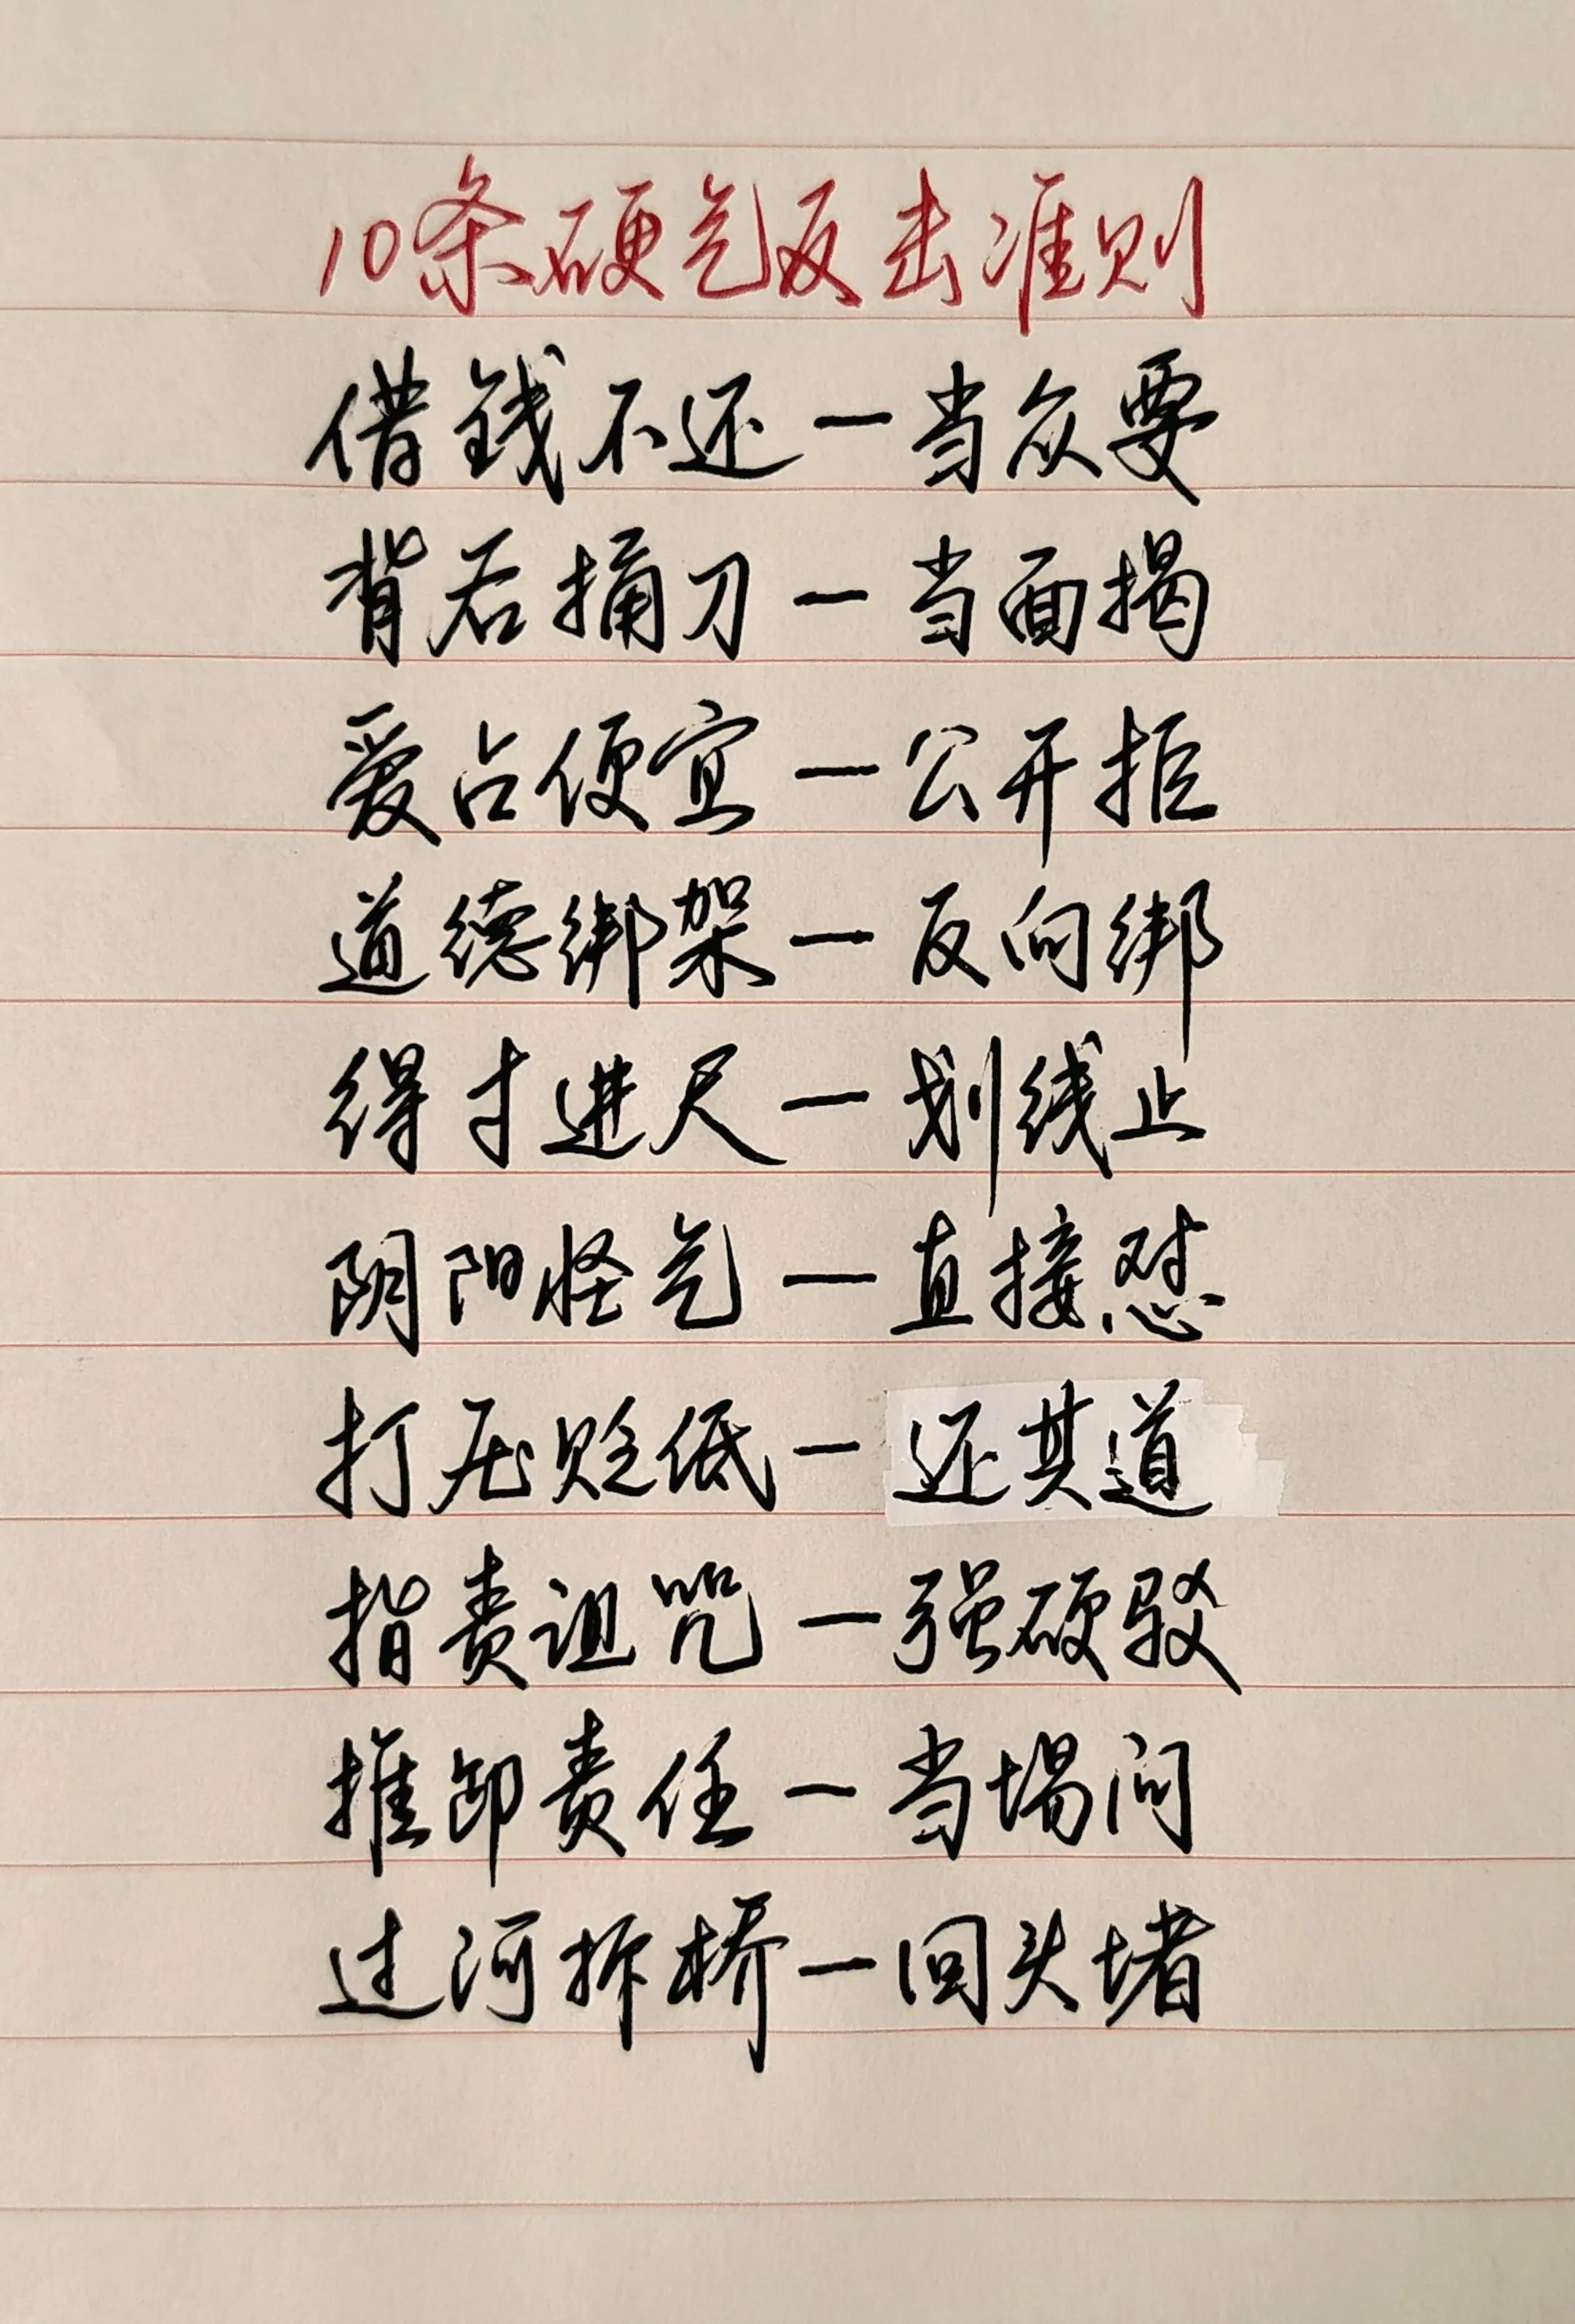 10条硬气反击准则
借钱不还一当众要
背后捅刀一当面揭
爱占便宜一公开拒
道德绑架一反向绑
得寸进尺一划线止
阴阳怪气一直接怼
打压贬低一还其道
指责诅咒一强硬驳
推卸责任一当场问
过河拆桥一回头堵